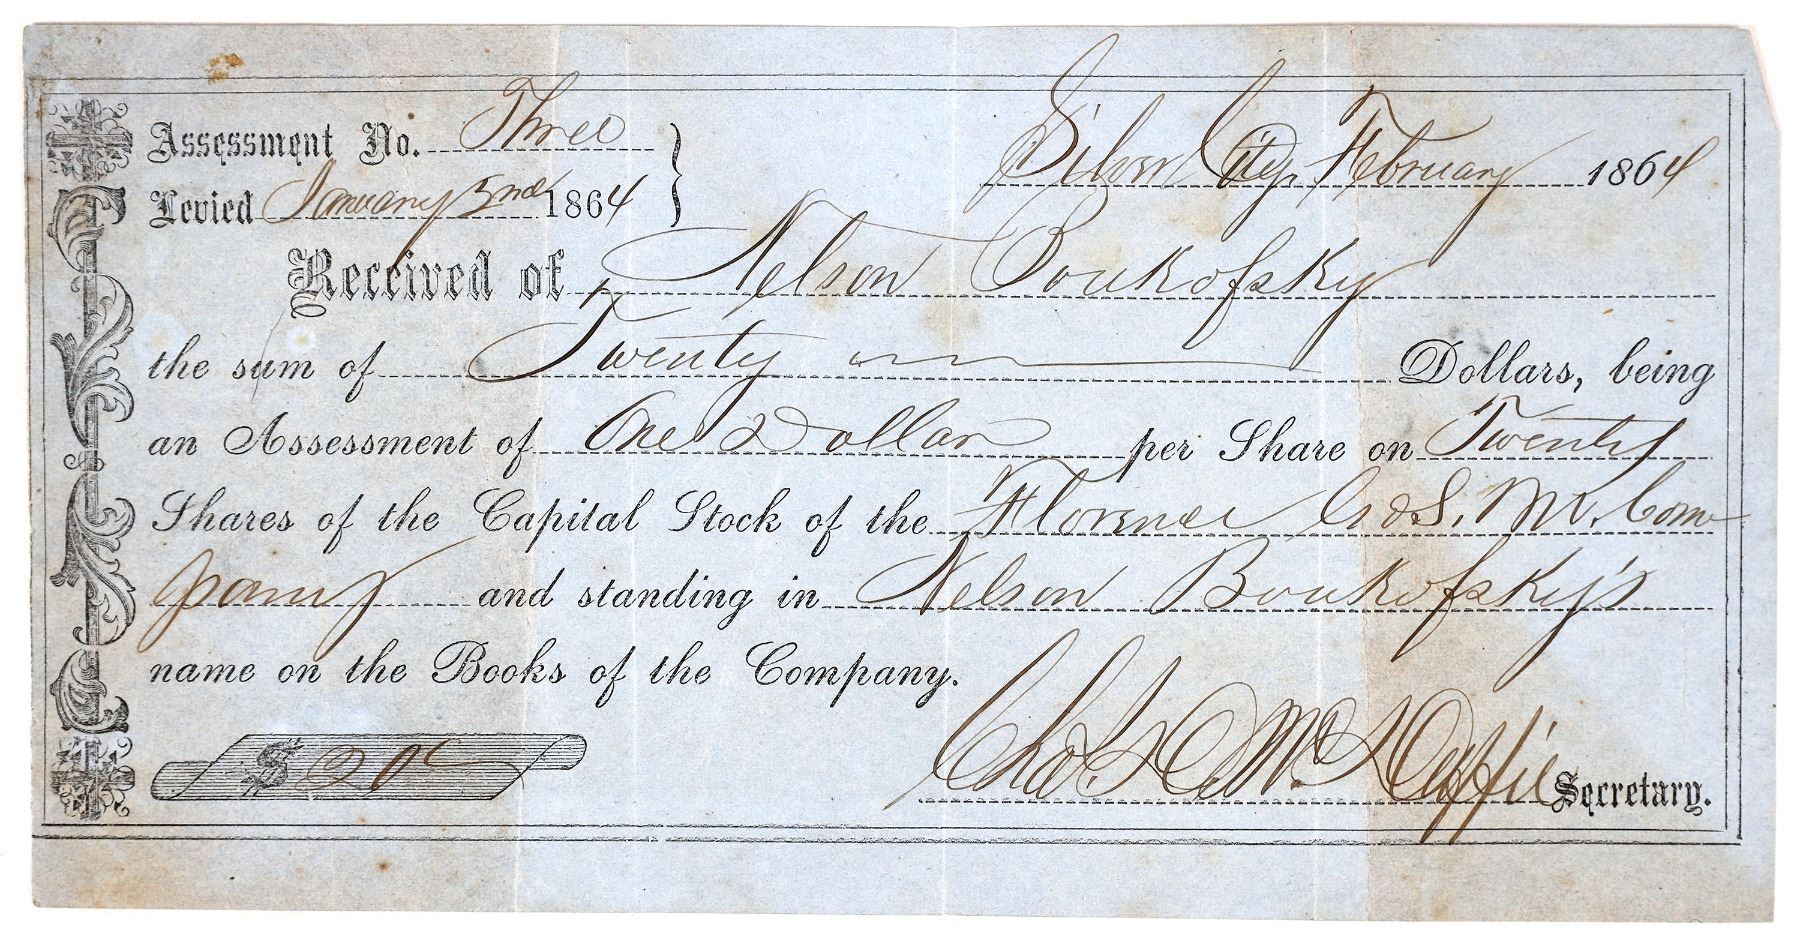 Assessment No. Three
Levied January 2nd 1864
Silver City, February 1864
Received of Nelson Boukofsky
the sum of Twenty Dollars, being
an Assessment of One Dollar per Share on Twenty
Shares of the Capital Stock of the Florence G & S. M. Com
pany and standing in Nelson Boukofsky's
name on the Books of the Company.
$ 20
Chas. Secretary.